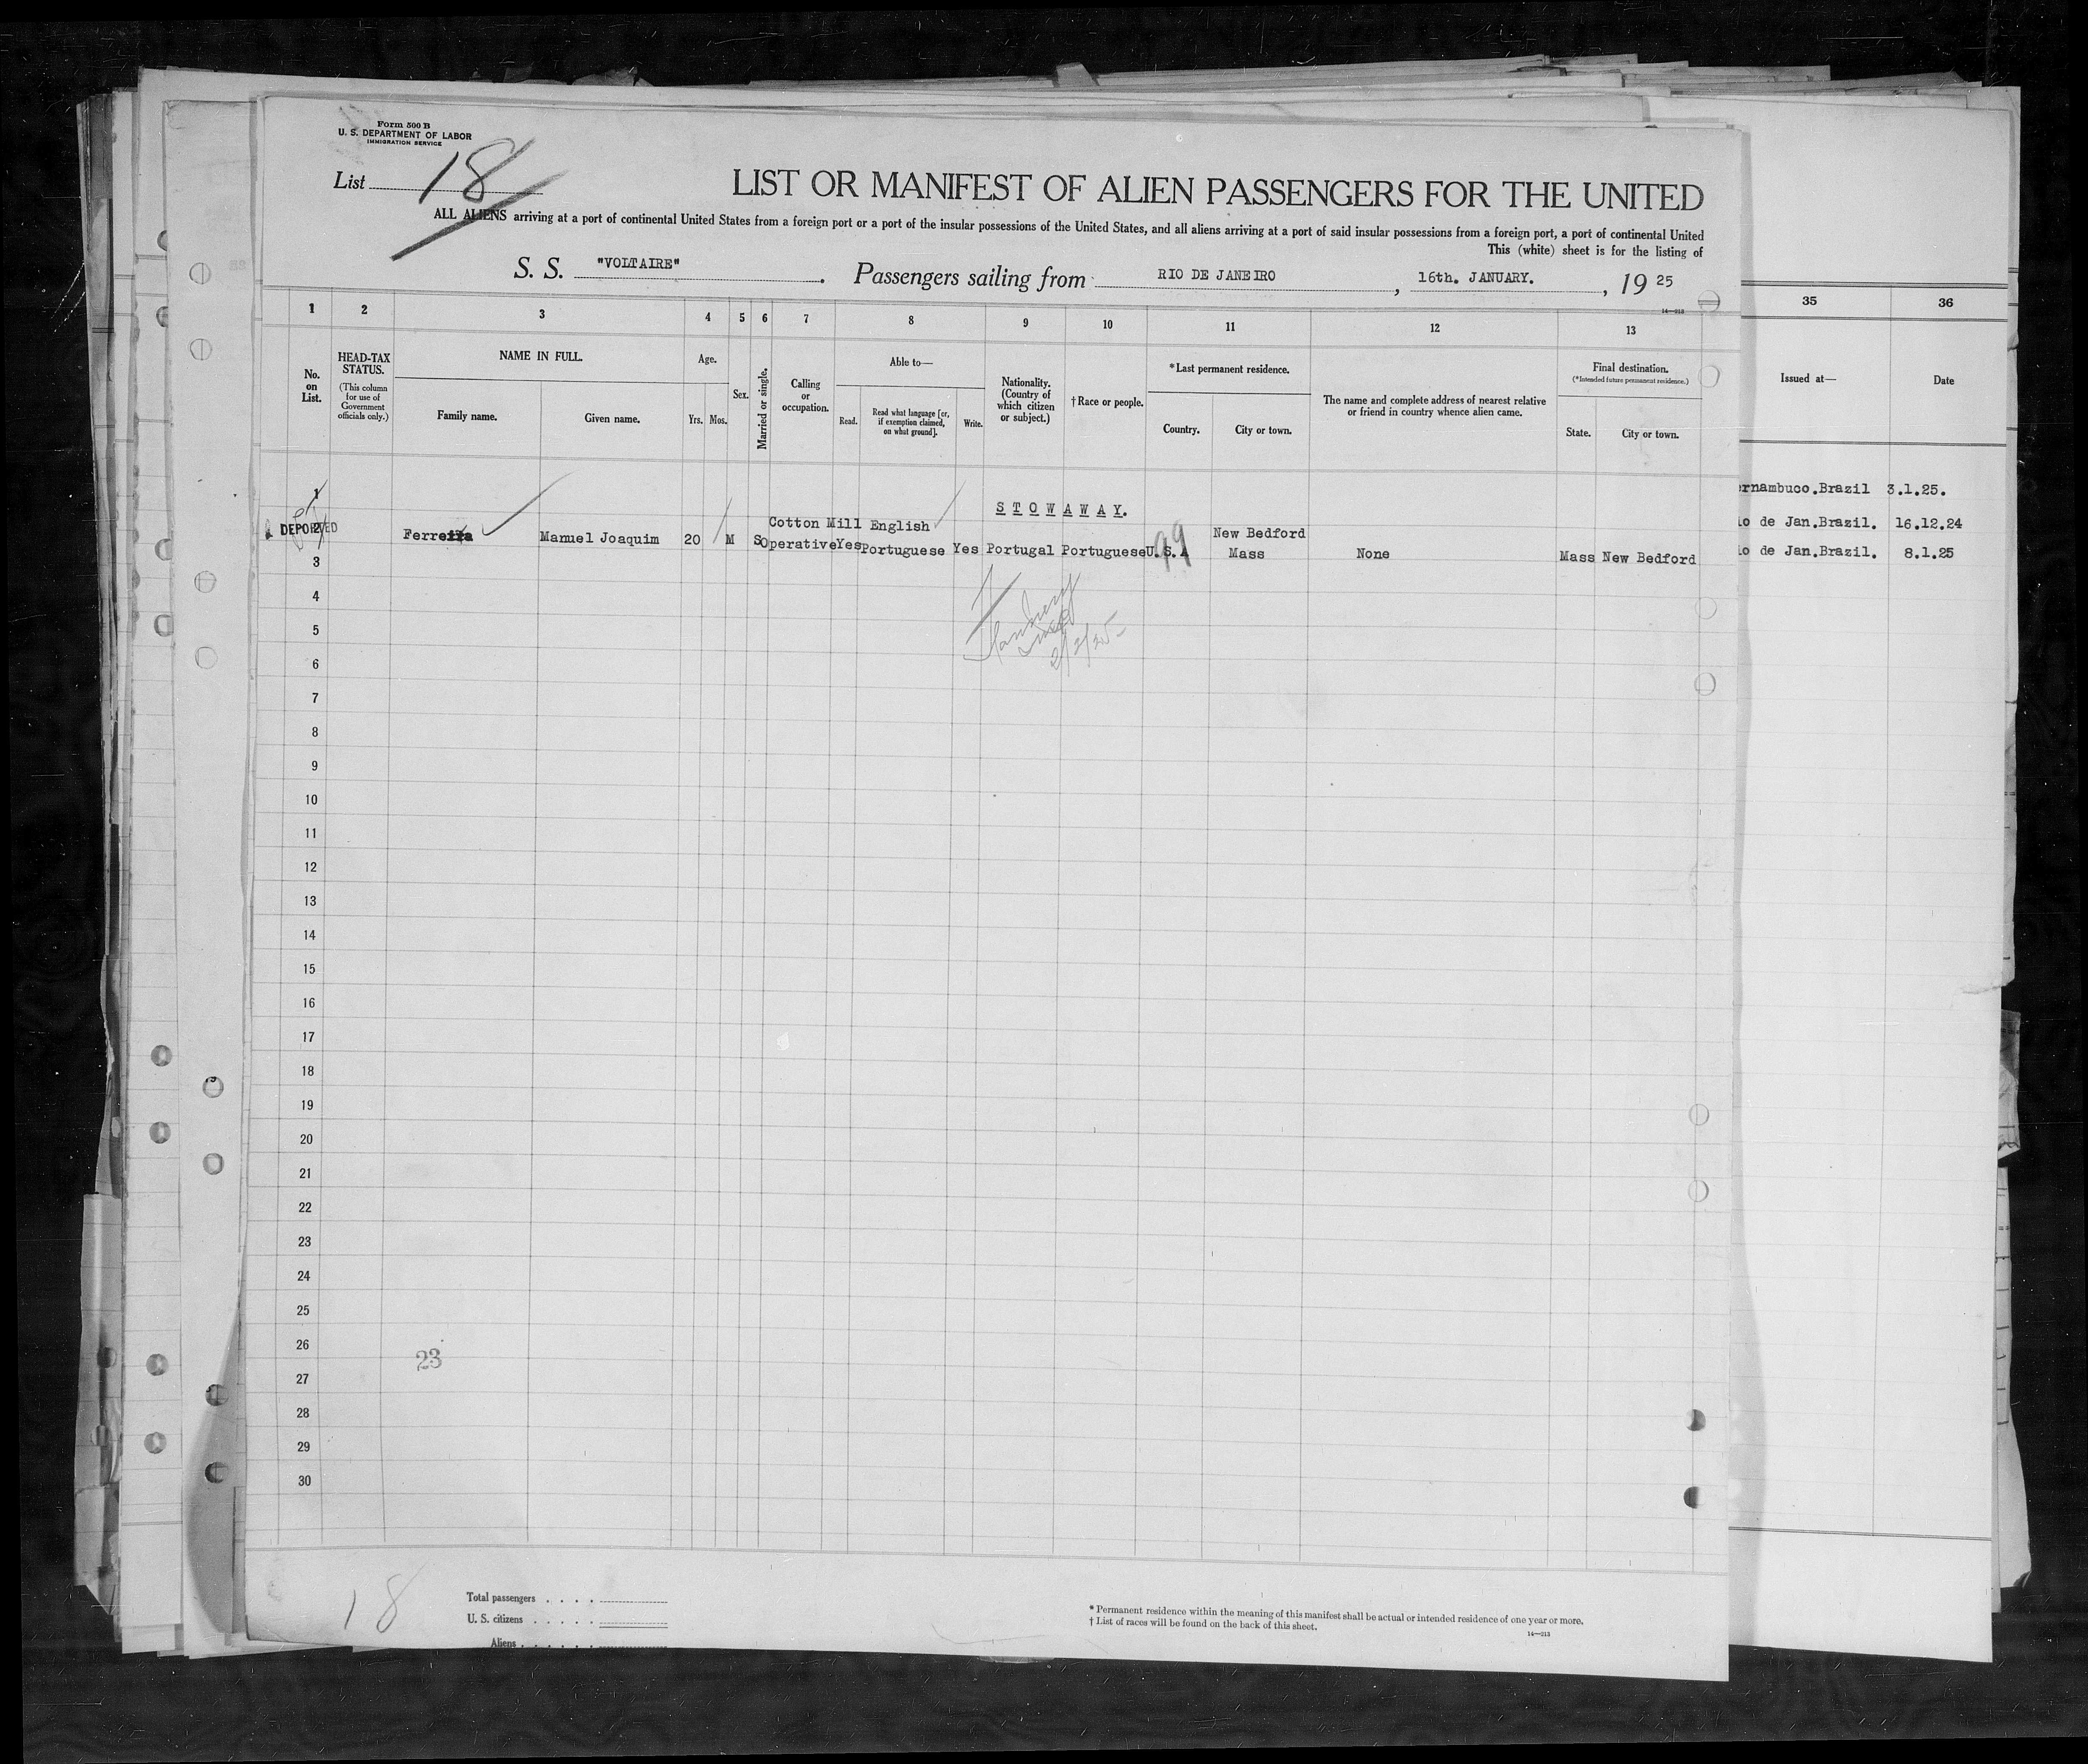 Form 500 B
U. S. DEPARTMENT OF LABOR
IMMIGRATION SERVICE
List 18
LIST OR MANIFEST OF ALIEN PASSENGERS FOR THE UNITED
ALL ALIENS arriving at a port of continental United States from a foreign port or a port of the insular possessions of the United States, and all aliens arriving at a port of said insular possessions from a foreign port, a port of continental United
This (white) sheet is for the listing of
S. S. "VOLTAIRE". Passengers sailing from RIO DE JANEIRO, 16th. JANUARY., 19 25
14—213
1 2 3 4 5 6 7 8 9 10 11 12 13 35 36
No. on List.
HEAD-TAX STATUS.
(This column for use of Government officials only.)
NAME IN FULL.
Family name.
Given name.
Age.
Yrs. Mos.
Sex.
Married or single.
Calling or occupation.
Able to—
Read.
Read what language [or, if exemption claimed, on what ground].
Write.
Nationality. (Country of which citizen or subject.)
†Race or people.
*Last permanent residence.
Country.
City or town.
The name and complete address of nearest relative or friend in country whence alien came.
Final destination.
(*Intended future permanent residence.)
State.
City or town.
Issued at—
Date
1
ernambuco.Brazil 3.1.25.
STOWAWAY.
DEPORTED 2 Ferreira Manuel Joaquim 20 M S Cotton Mill Operative Yes English Portuguese Yes Portugal Portuguese U.S.A New Bedford Mass None Mass New Bedford
io de Jan.Brazil. 16.12.24
io de Jan.Brazil. 8.1.25
99
3
4
2/2/25
5
6
7
8
9
10
11
12
13
14
15
16
17
18
19
20
21
22
23
24
25
26
23
27
28
29
30
18
Total passengers . . . .
U. S. citizens . . . . .
Aliens . . . . . .
* Permanent residence within the meaning of this manifest shall be actual or intended residence of one year or more.
† List of races will be found on the back of this sheet.
14—213